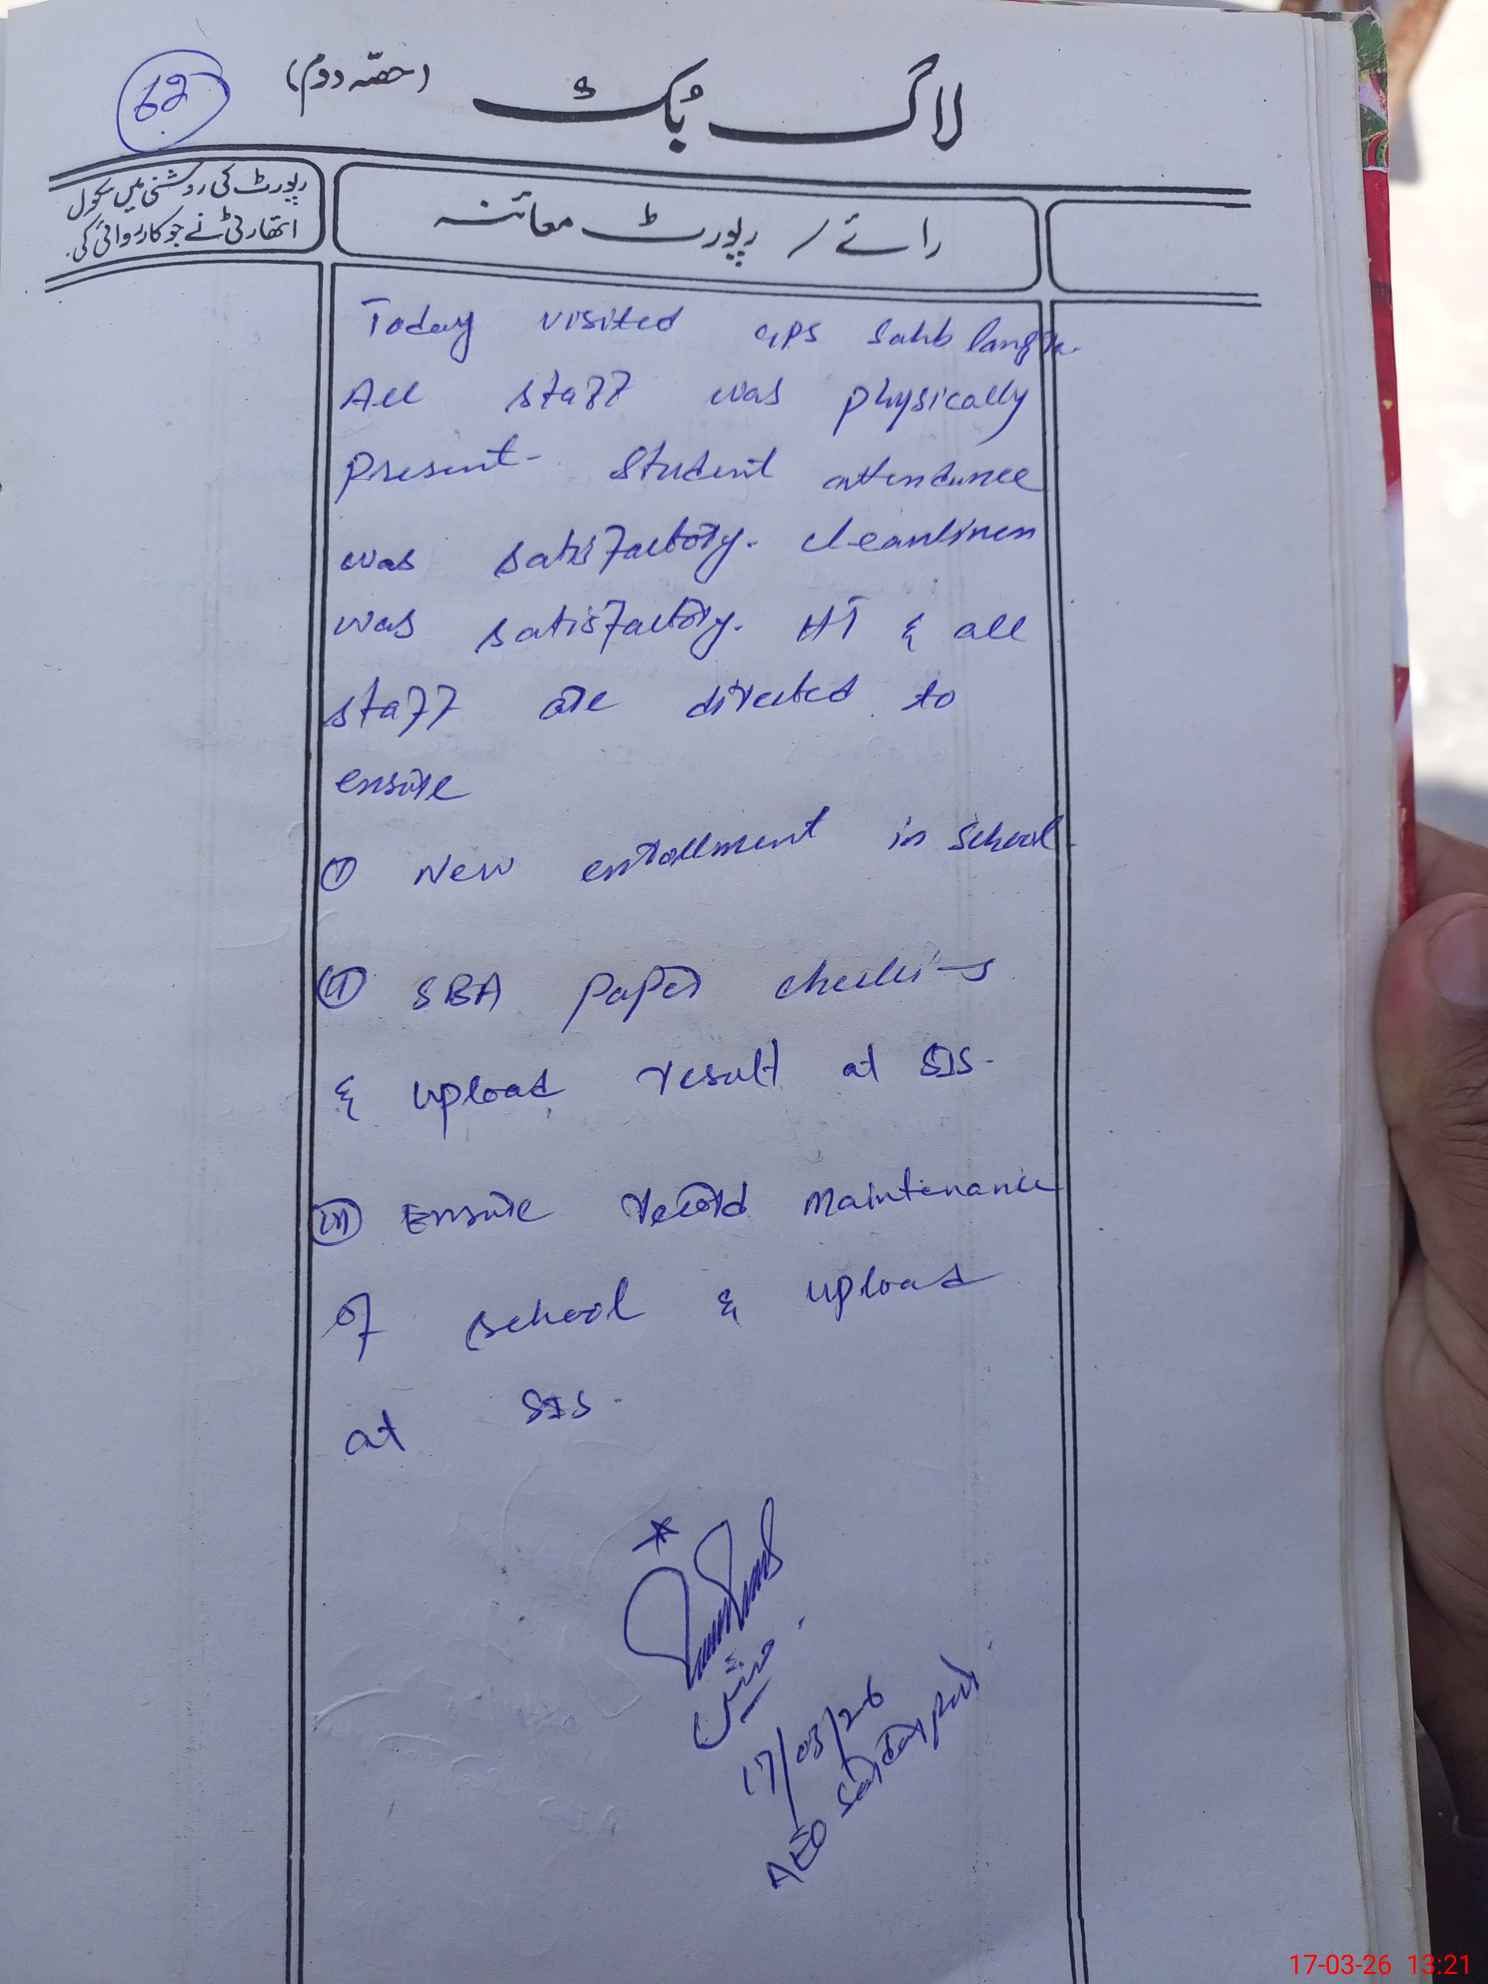 62
لاگ بُک (حصّہ دوم)
رائے / رپورٹ معائنہ
رپورٹ کی روشنی میں سکول
اتھارٹی نے جو کارروائی کی.
Today visited GPS Sahb
All staff was physically
Present- Student attendance
was satisfactory. cleanliness
was satisfactory. HT & all
staff are directed to
ensure
(I) New enrollment in School.
(II) SBA Paper
& upload result at SIS.
(III) Ensure record maintenance
of school & upload
at SIS.
17/03/26
AEO
17-03-26 13:21